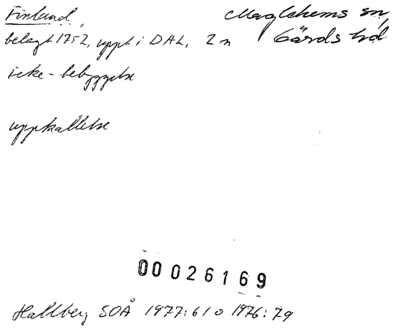 Finland,
Maglehems sn,
belagt 1752, uppt i DAL, 2 n
Gärds hd
icke-bebyggelse
uppkallelse
00026169
Hallberg SOÅ 1977:61 o 1976:79